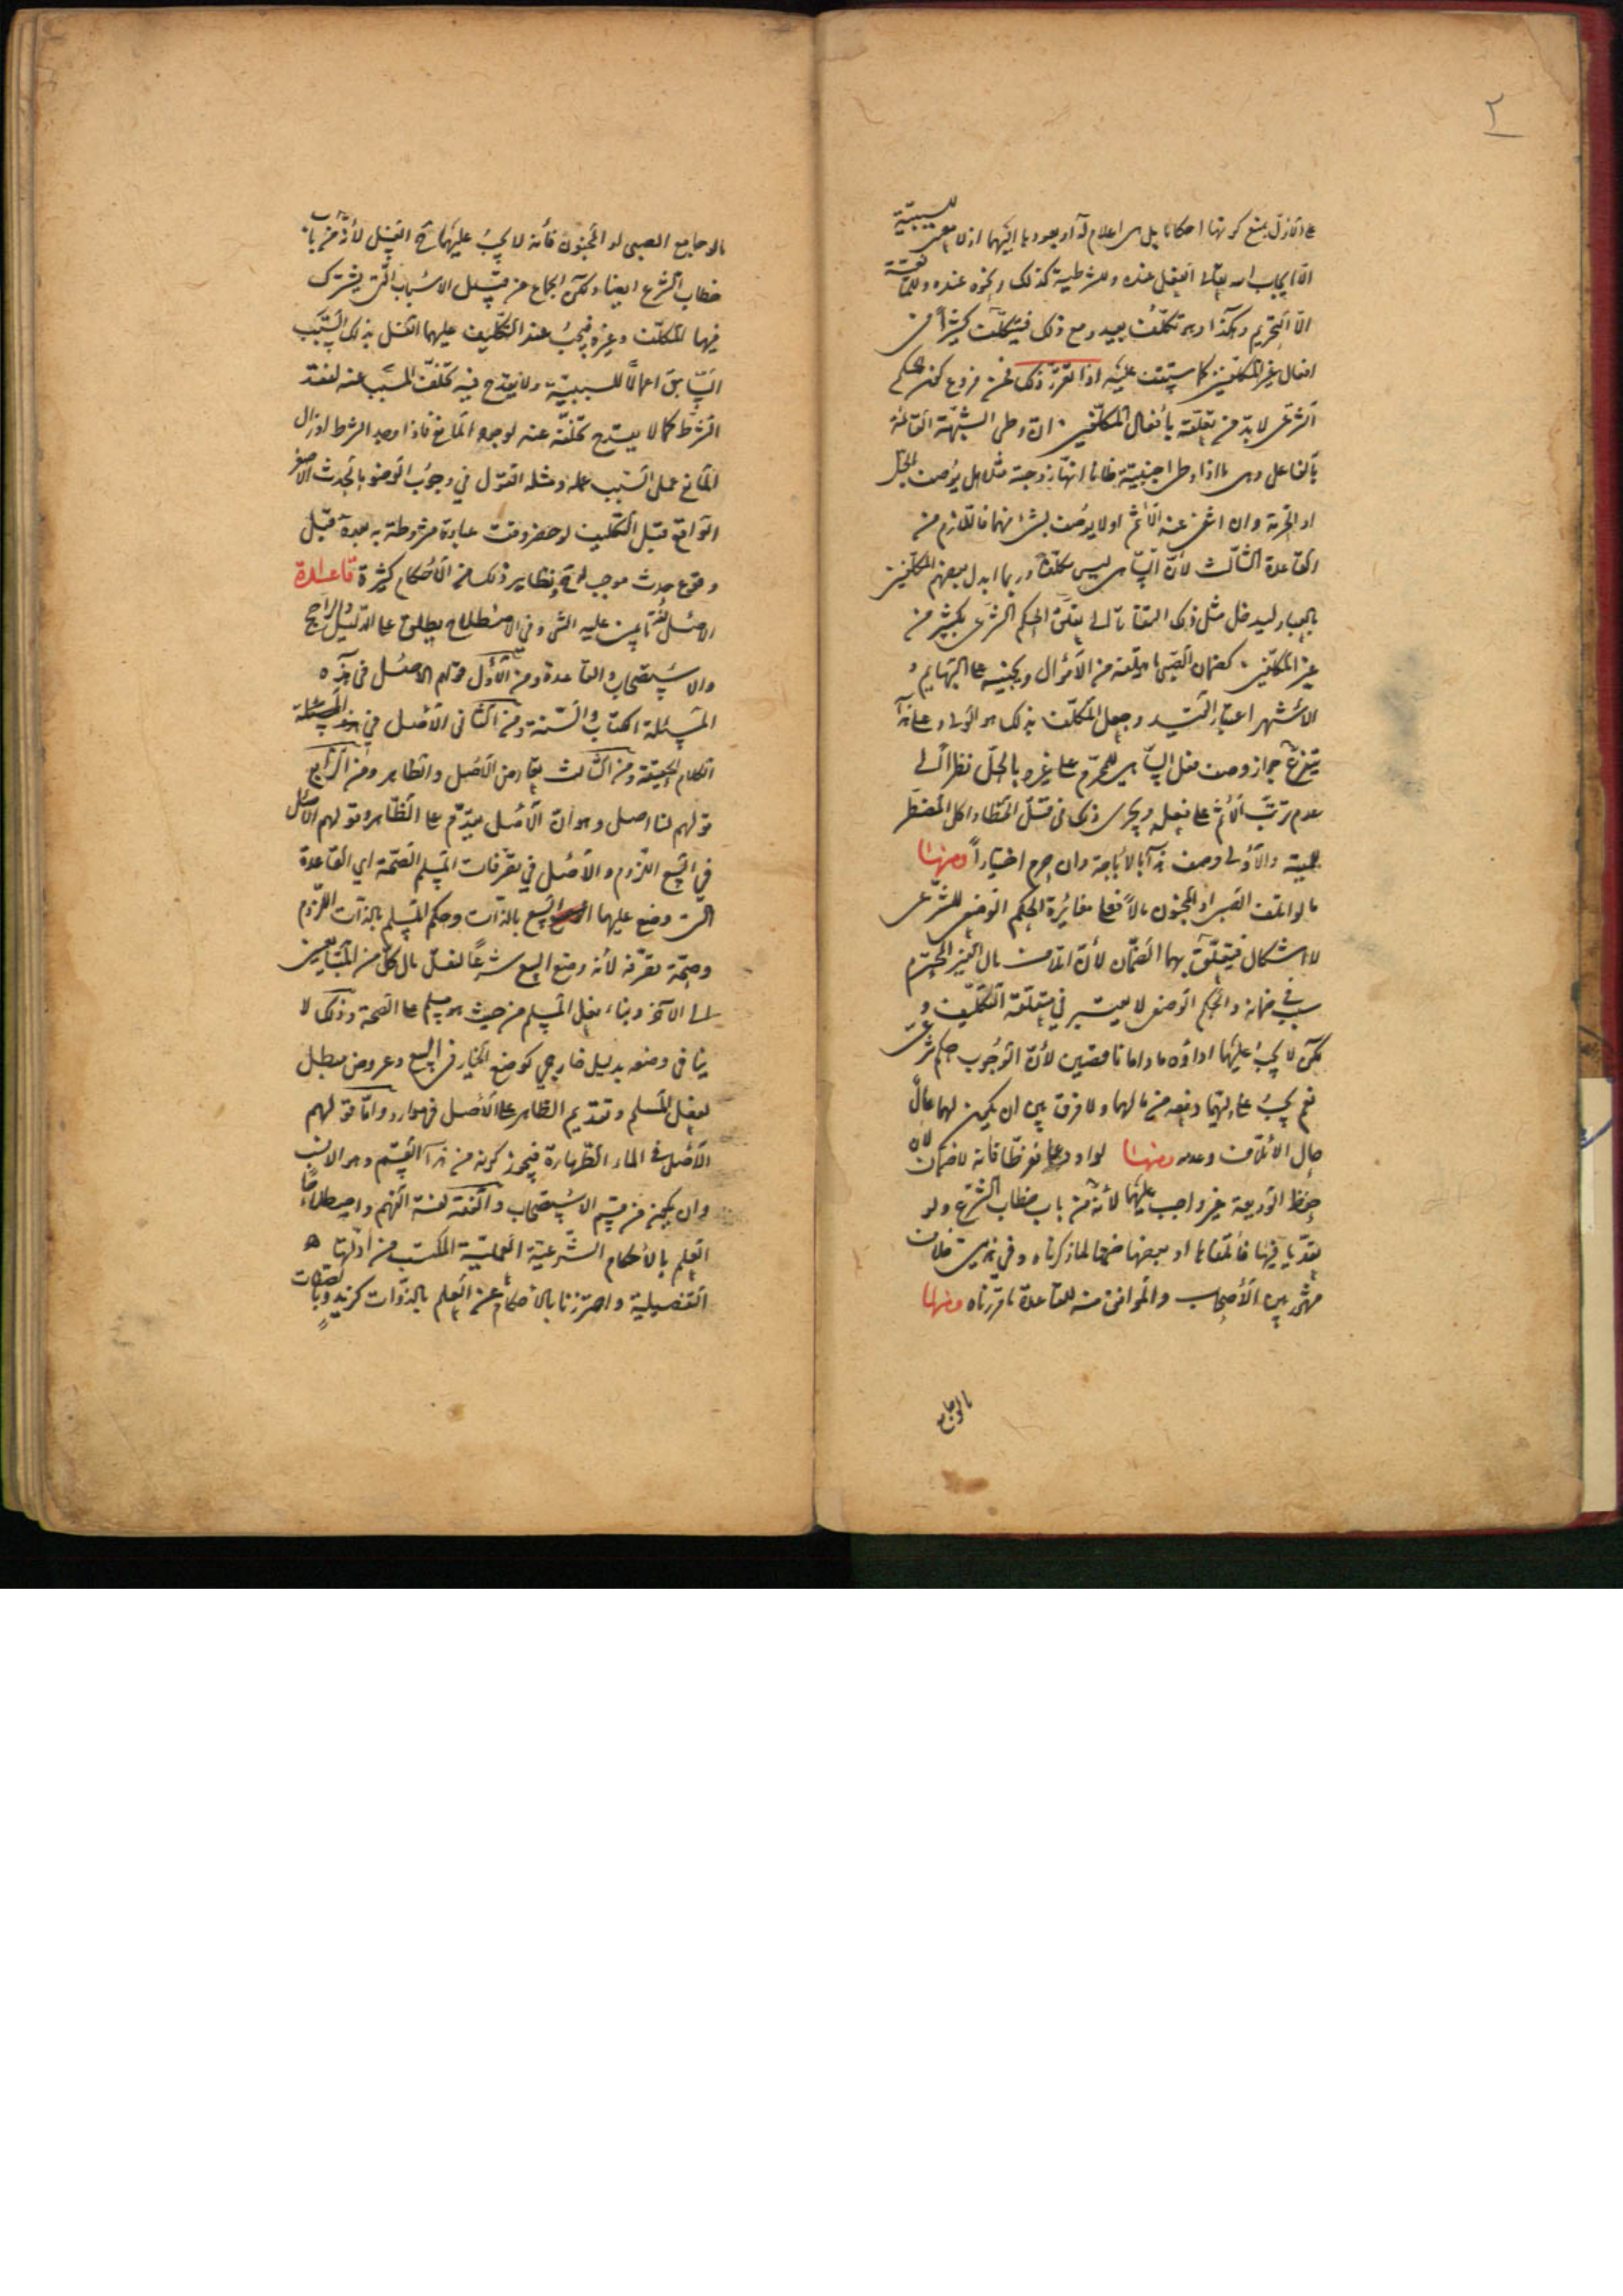 ٢
على تأول يمنع كونها احكاما بل هى اعلام له او بعودها اليهما اذ لا معنى للسببية
الا ايجاب الله تعالى الفعل عنده وللشرطية كذلك ونحوه عنده وللمانعية
الا التحريم وهكذا وهو تكلف بعيد ومع ذلك فيتكلف كثيرا من
افعال غير المكلفين كما ستقف عليه اذا تقرر ذلك فمن فروع كون الحكم
الشرعى لابد من تعلقه بأفعال المكلفين ان وطى الشبهة القائمة
بالفاعل وهى ما اذا وطى اجنبية ظانا انها زوجته مثلا هل يوصف بالحل
او الحرمة وان انتفى عنه الأثم او لا يوصف بشئ منهما فالثلازم من
القاعدة الثالث لأن الساهى ليس مكلفا وربما ابدل بعضهم المكلفين
بالعباد ليدخل مثل ذلك التفاتا الى تعلق الحكم الشرعى بكثير من
غير المكلفين كضمان الصبى ما يتلفه من الأموال ويجنيه على البهايم و
الأشهر اعتبار القيد وجعل المكلف بذلك هو الولى وعلى هذا
يتفرع جواز وصف فعل الساهى للمحرم على غيره بالحل نظرا الى
عدم ترتب الأثم على فعله ويجرى ذلك فى قتل الخطاء واكل المضطر
للميتة والأولى وصف هذا بالأباحة وان حرم اختيارا ومنها
ما لو اتلف الصبى او المجنون مالا فعلى مغائرة الحكم الوضعى للشرعى
لا اشكال فيتعلق بهما الضمان لأن اتلاف مال الغير المحترم
سبب فى ضمانه والحكم الوضعى لا يعتبر فى متعلقه التكليف و
لكن لا يجب عليهما اداؤه ما داما ناقصين لأن الوجوب حكم شرعى
نعم يجب على وليهما دفعه من مالهما ولا فرق بين ان يكون لهما مال
حال الأتلاف وعدمه ومنها لو اودعا ففرطا فانه لا ضمان لأن
حفظ الوديعة غير واجب عليهما لأنه من باب خطاب الشرع ولو
تعديا فيها فأتلفاها او بعضها ضمنا لما ذكرناه وفى هذين خلاف
مشهور بين الأصحاب والموافق منه للقاعدة ما قررناه ومنها
ما لو جامع
ما لو جامع الصبى او المجنون فأنه لا يجب عليهما ح الغسل لأنه من باب
خطاب الشرع ايضا ولكن الجماع من قبيل الأسباب التى يشترك
فيها المكلف وغيره فيجب عند التكليف عليهما الغسل بذلك السبب
السابق اعمالا للسببية ولا يقدح فيه تخلف المسبب عنه لفقد
الشرط كما لا يقدح تخلفه عنه لوجود المانع فاذا وجد الشرط او زال
المانع عمل السبب عمله ومثله القول فى وجوب الوضوء بالحدث الأصغر
الواقع قبل التكليف لو حضر وقت عبادة مشروطة به بعده قبل
وقوع حدث موجب له ونظاير ذلك من الأحكام كثيرة قاعدة
الأصل لغة ما يبنى عليه الشئ وفى الأصطلاح يطلق على الدليل والراجح
والأستصحاب والقاعدة ومن الأول قولهم الأصل فى هذه
المسئلة الكتاب والسنة ومن الثانى الأصل فى
الكلام الحقيقة ومن الثالث تعارض الأصل والظاهر ومن الرابع
قولهم لنا اصل وهو ان الأصل يقدم على الظاهر وقولهم الأصل
فى البيع اللزوم والأصل فى تصرفات المسلم الصحة اى القاعدة
التى وضع عليها البيع بالذات وحكم المسلم بالذات اللزوم
وصحة تصرفه لأنه وضع البيع شرعا لنقل مال كل من المتبايعين
الى الآخر وبناء فعل المسلم من حيث هو مسلم على الصحة وذلك لا
ينافى وضعه بدليل خارجى كوضع الخيار فى البيع وعروض مبطل
لفعل المسلم وتقديم الظاهر على الأصل فى موارد واما قولهم
الأصل فى الماء الطهارة فيجوز كونه من هذا القسم وهو الأنسب
وان يكون من قسم الأستصحاب والفقه لغة الفهم واصطلاحا
العلم بالأحكام الشرعية العملية المكتسب من ادلتها
التفصيلية واحترزنا بالأحكام عن العلم بالذوات كزيد وبالصفات